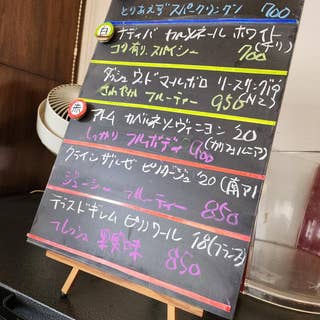 とりあえずスパークリング 700
白
ナティバ シャルドネール ホワイト
(チリ)
コク有り、スパイシー 700
ダシュウド マルボロ リースリング19
さわやか フルーティー 950 NZ)
赤
アトム カベルネソーヴィニヨン 20
しっかり フルボディ 900 (カリフォルニア)
クライン ザルゼ ピノタージュ '20 (南ア)
ジューシー フルーティー 850
デラスドギレム ピノノワール 18(フランス)
フレッシュ 果実味 850